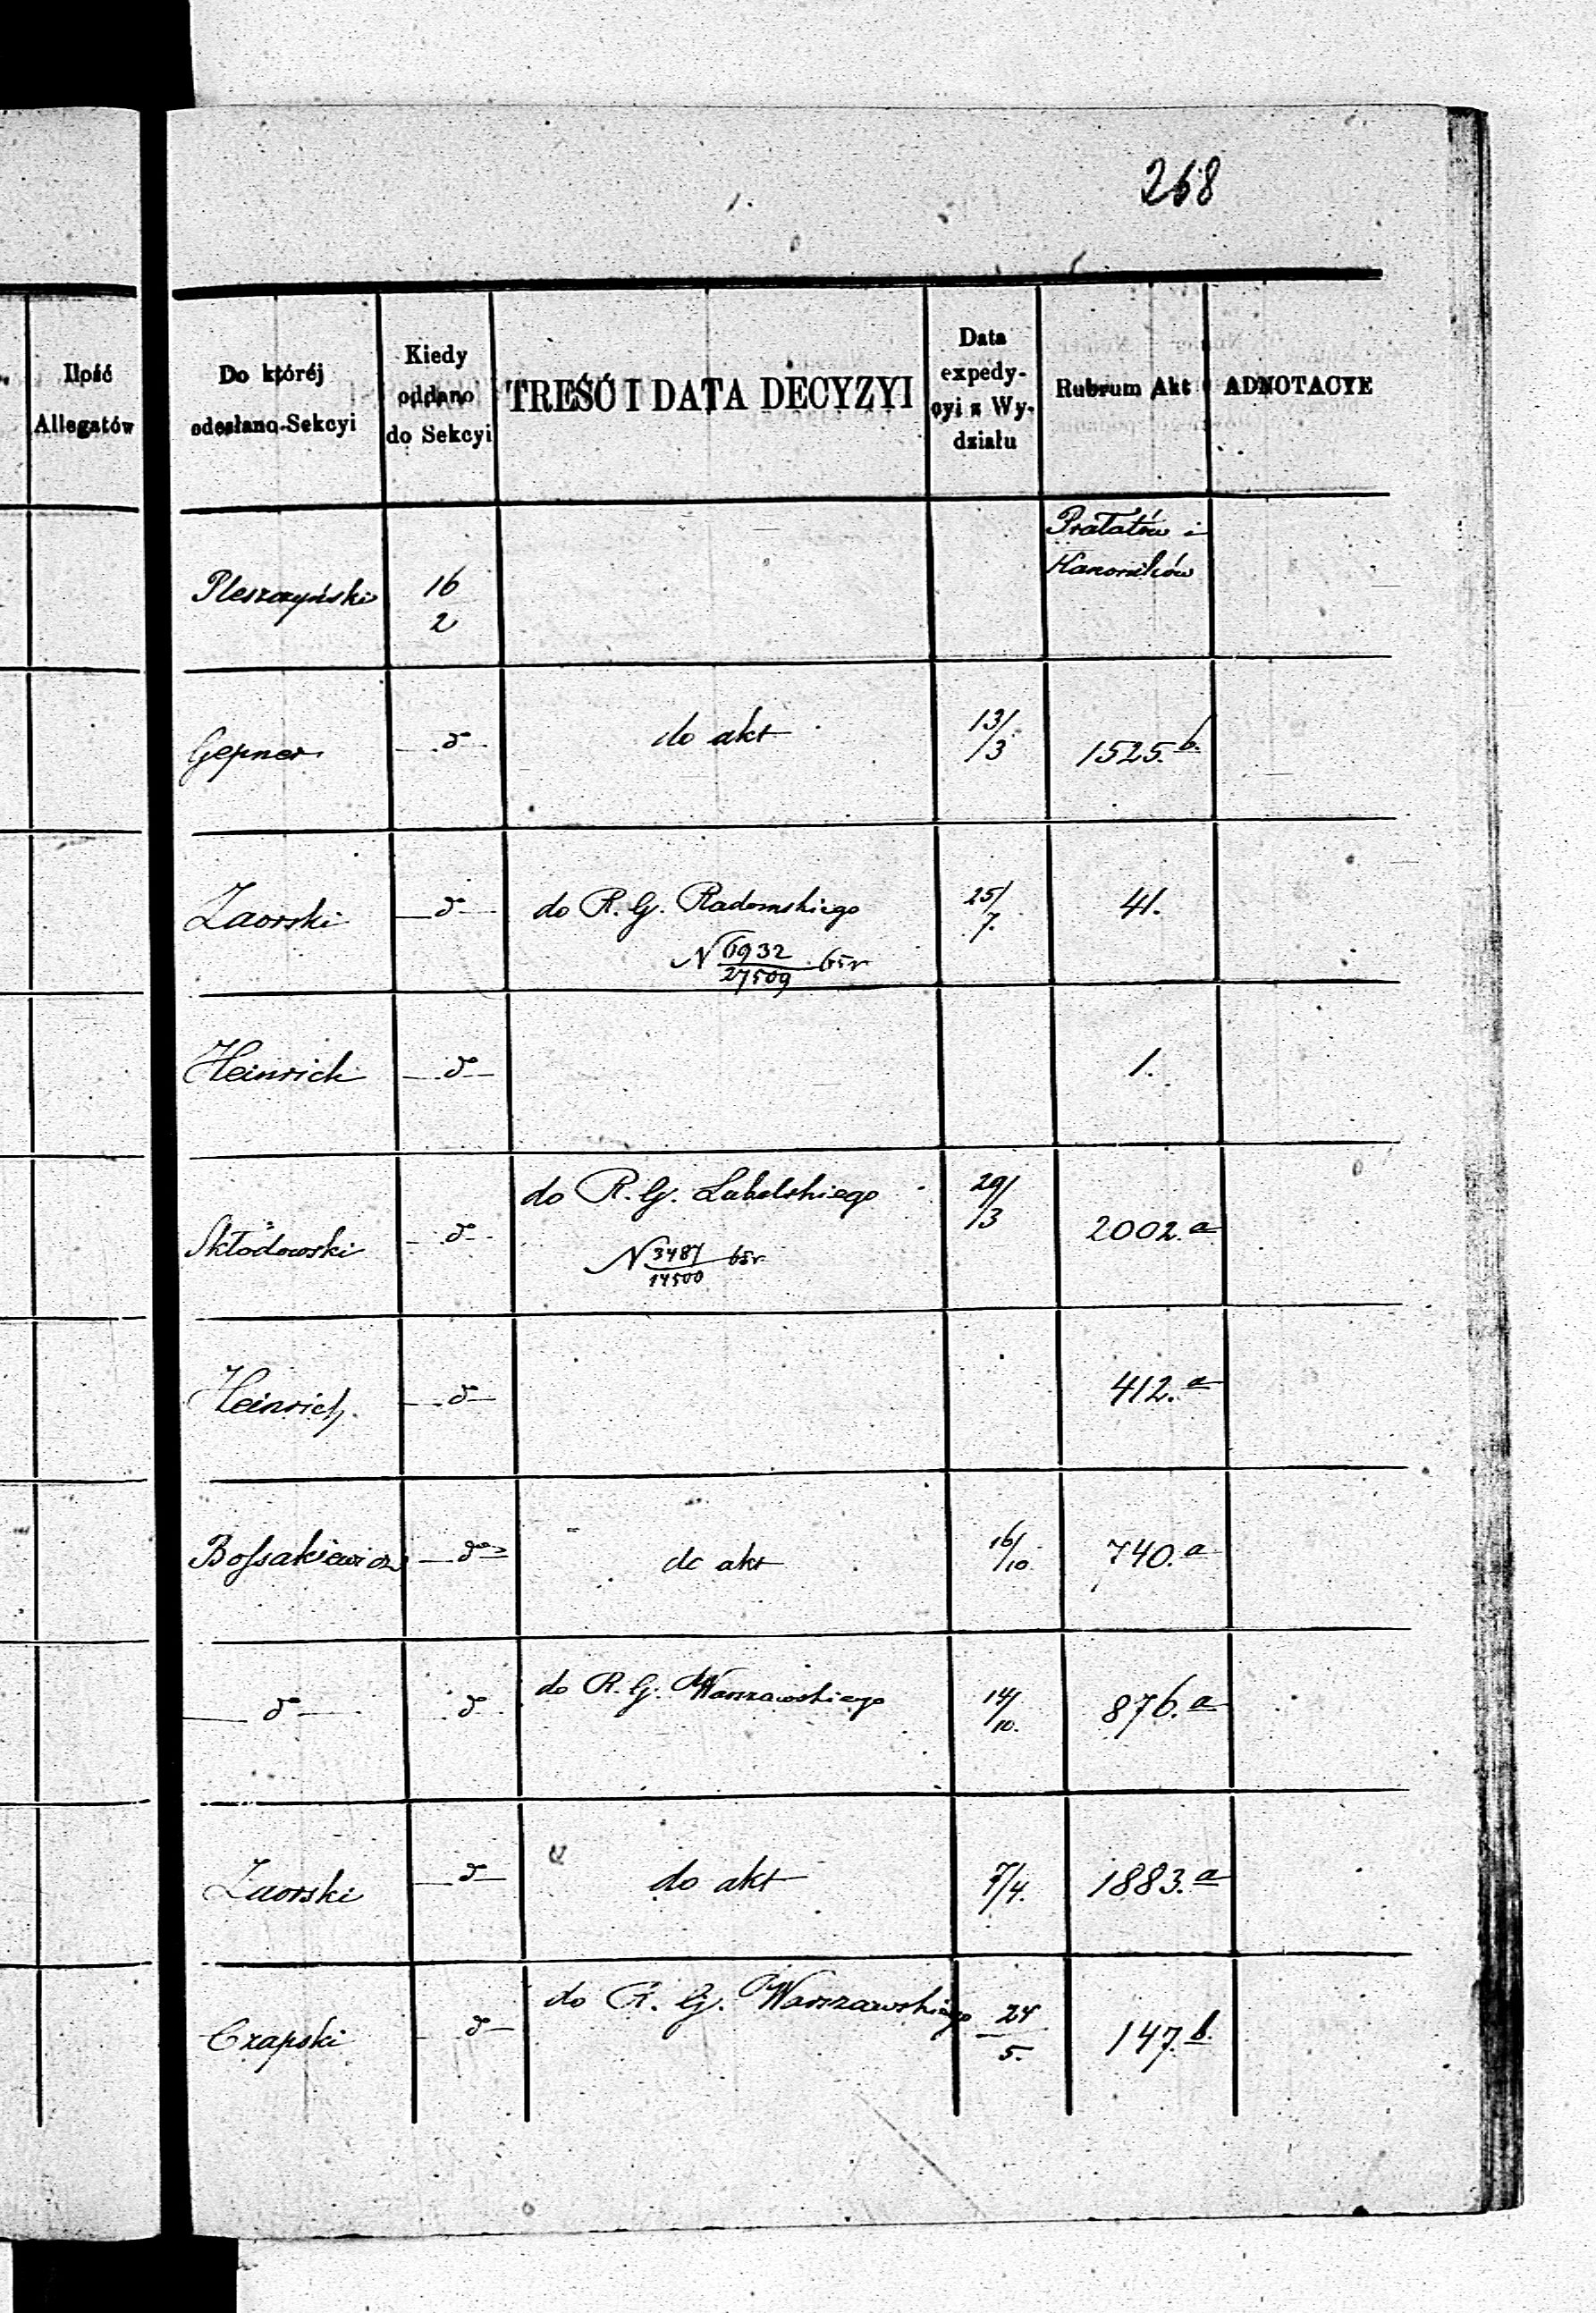 268
Ilość
Allegatów
Do któréj
odesłano Sekcyi
Kiedy
oddano
do Sekcyi
TREŚĆ I DATA DECYZYI
Data
expedy-
cyi z Wy-
działu
Rubrum Akt
ADNOTACYE
Prałatów i
Kanoników
Pleszczyński
16
2
Gepner
do
do akt
13/
/3
1525.b.
Zaorski
do
do R. G. Radomskiego
N 6932
27509
65r
25/
7.
41.
Heinrich
do
1.
Skłodowski
do
do R. G. Lubelskiego
N 3487
14500
65r
29/
/3
2002.a
Heinrich
do
412.a
Bossakiewicz
do
do akt
16/
/10
740.a
do
do
do R. G. Warszawskiego
14/
/10.
876.a
Zaorski
do
do akt
7/4.
1883.a
Czapski
do
do R. G. Warszawskiego
24
5.
147.b.